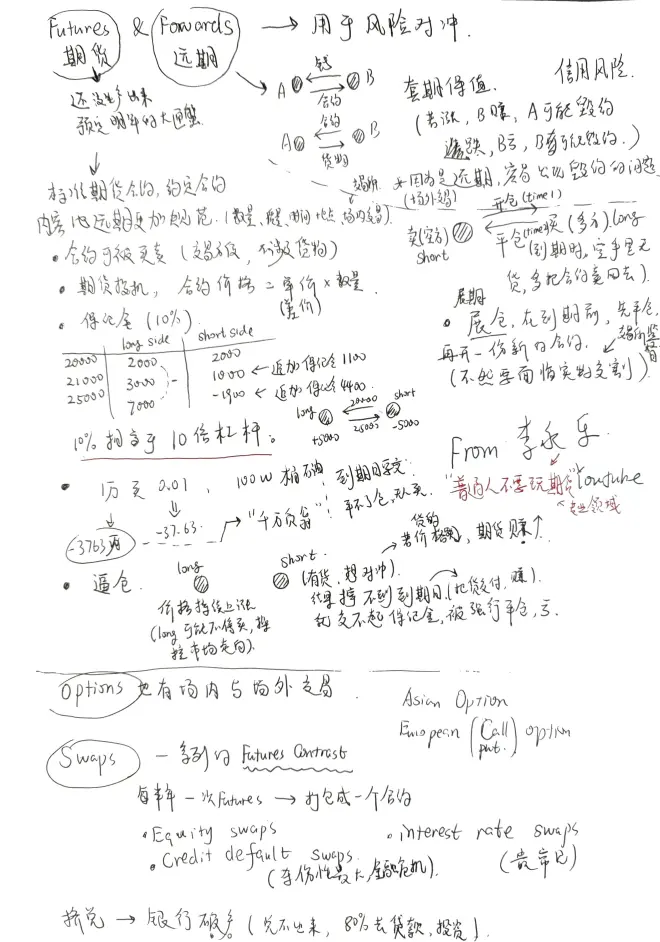 Futures & Forwards → 用于风险对冲.
期货 远期
还没生产出来
预定明年的大闸蟹
A 钱 B
合约
A 合约 B
货物
套期保值. 信用风险.
(若涨, B赚, A可能毁约
若跌, B亏, B有可能毁约.)
* 因为是远期, 容易出现毁约的问题
(场外交易)
标准期货合约, 约定合约
内容比远期更加规范. (数量、时间地点、场内交易)
交易所
平仓(time 1)
卖(空方) 平仓(time 2) 买(多方) long
short
(到期时, 空手里无
货, 多把合约卖回去).
• 合约可被买卖 (交易合约, 不涉及货物)
• 期货投机, 合约价格 = 单价 × 数量
(差价)
展期
• 展仓, 在到期前, 先平仓,
再开一份新的合约. 交易所监管
(不然要面临实物交割)
• 保证金 (10%)
long side short side
20000 2000 2000
21000 3000 1000 ← 追加保证金 1100
25000 7000 -1900 ← 追加保证金 4400
long 20000 short
+5000 25000 -5000
10% 相当于 10倍杠杆。
From 李永乐
"普通人不要玩期货" Youtube
专业领域
• 1万买 0.01, 100W 桶石油, 到期日要交
-37.63.
-3763万 "千万负翁"! 平不了仓, 无人买.
• 逼仓
long short
价格持续上涨
(long 可能不停买, 操
控市场走向).
(有货, 想对冲).
货的
若价格跌, 期货赚↑
结果撑不到到期日, (把货交付, 赚).
就交不起保证金, 被强行平仓, 亏.
Options 也有场内与场外交易.
Asian Option
European (Call put.) option
Swaps — 一系列的 Futures Contrast
每半年一次 Futures → 打包成一个合约
• Equity swaps • interest rate swaps
• Credit default swaps. (最常见)
(杀伤性最大, 金融危机).
挤兑 → 银行破产 (兑不出来, 80%去贷款, 投资).